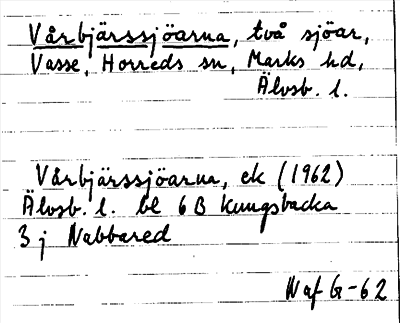 Vårbjärssjöarna, två sjöar,
Vasse, Horreds sn, Marks hd,
Älvsb. l.
Vårbjärssjöarna, ek (1962)
Älvsb. l. bl 6 B Kungsbacka
3 j Nabbared
Naf G-62